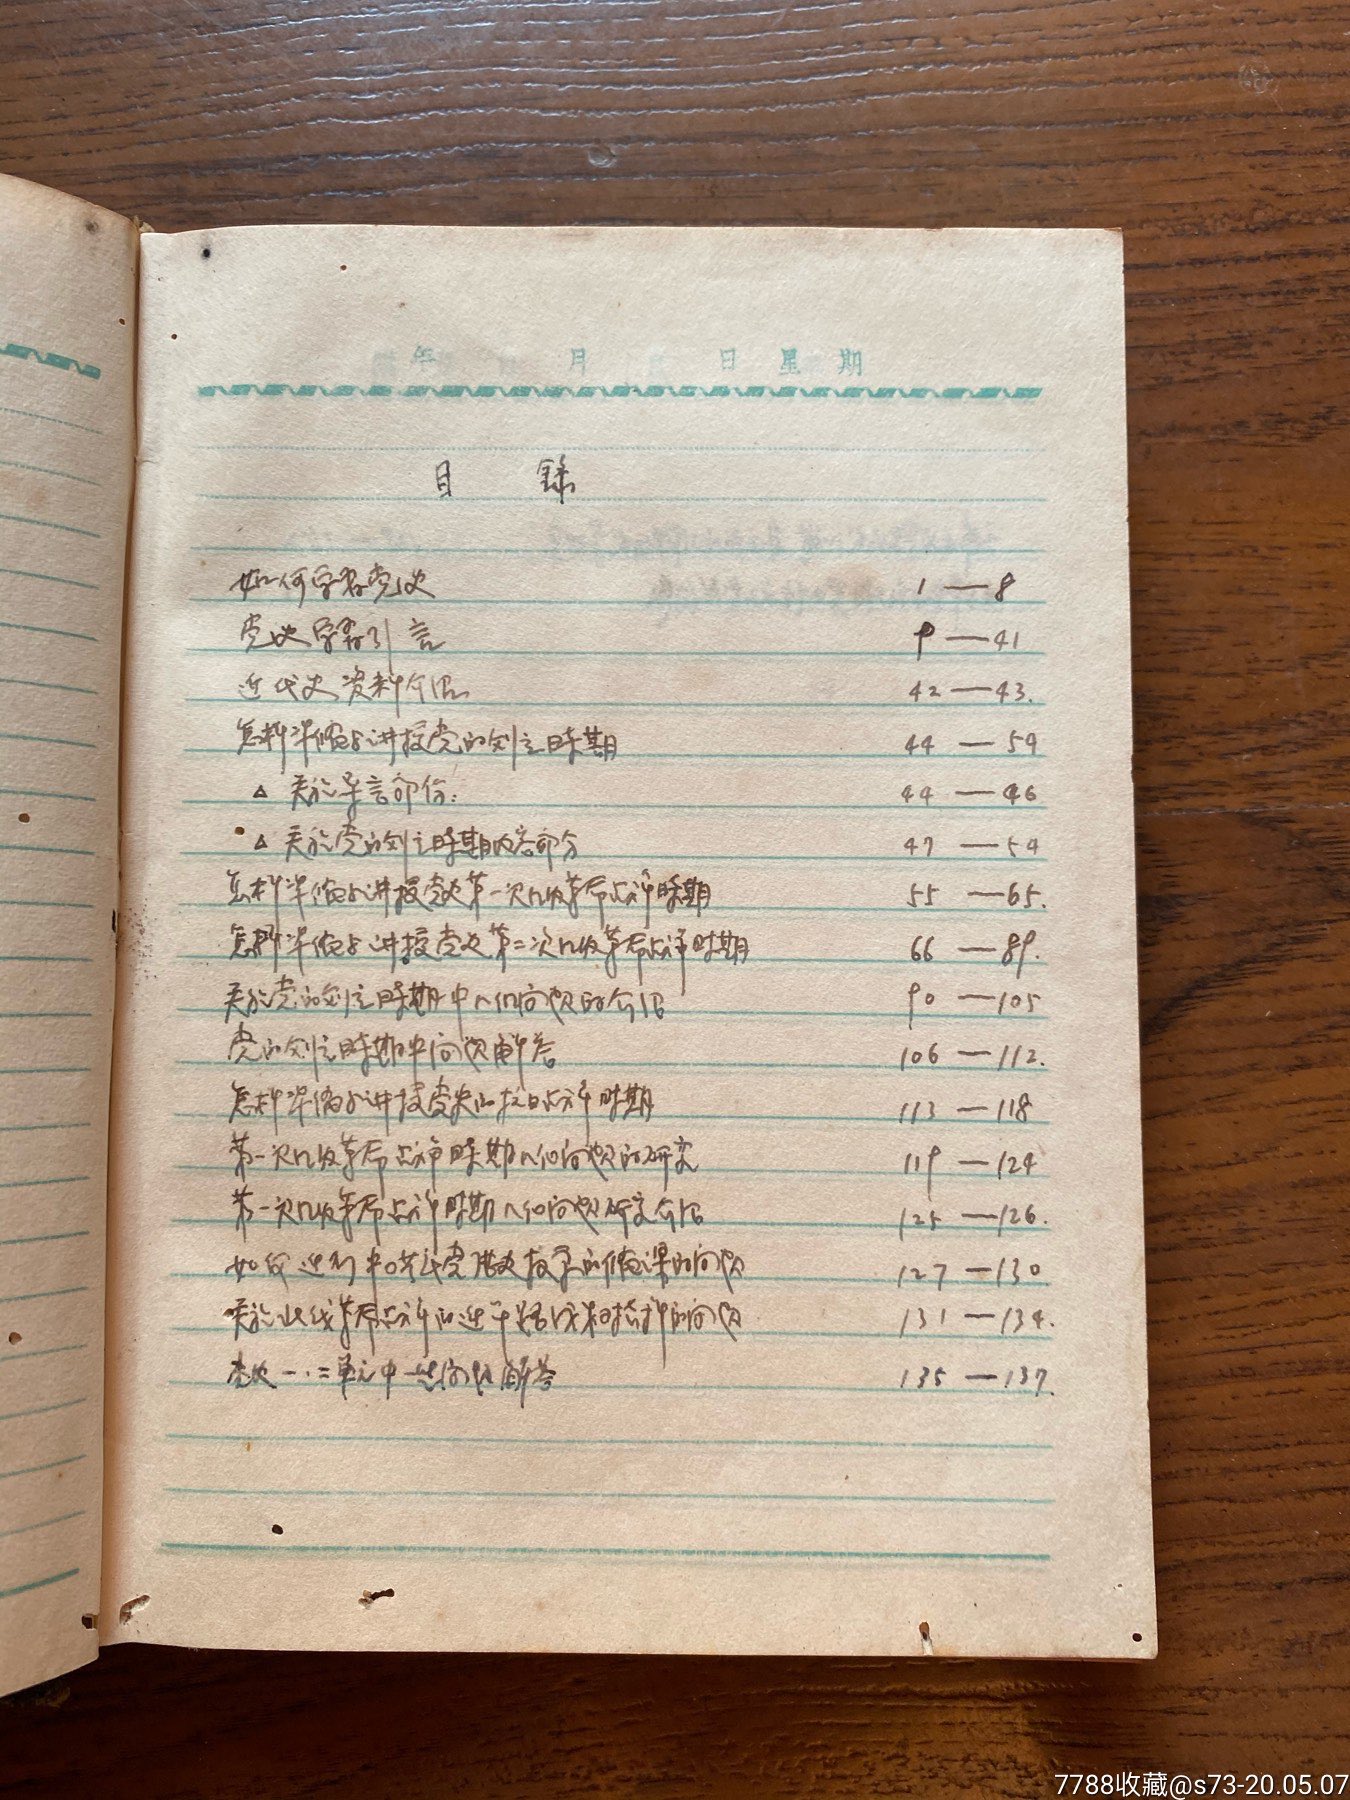 年 月 日 星期
目 錄
如何学習党史 1—8
党史学習引言 9—41
近代史資料介绍 42—43.
怎样准俻与讲授党的创立时期 44—54
△ 关於导言部份: 44—46
△ 关於党的创立时期内容部分 47—54
怎样准俻与讲授党史第一次国内革命战争时期 55—65.
怎样准俻与讲授党史第二次国内革命战争时期 66—89.
关於党的创立时期中几个问题的介绍 90—105
党的创立时期中问题解答 106—112.
怎样准俻与讲授党史的抗日战争时期 113—118
第一次国内革命战争时期几个问题的研究 119—124
第一次国内革命战争时期几个问题研究介绍 125—126.
如何进行中共党史教学的俻课的问题 127—130
关於 革命战争的 的问题 131—134.
党史一.二单元中一些问题解答 135—137.
7788收藏@s73-20.05.07